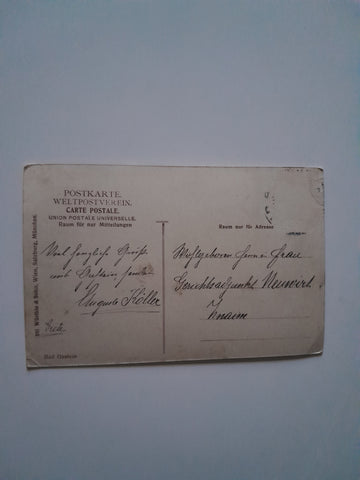 POSTKARTE.
WELTPOSTVEREIN.
CARTE POSTALE.
UNION POSTALE UNIVERSELLE.
Raum für nur Mitteilungen
Raum nur für Adresse
Viel herzliche Grüße
Auguste Köller
Wohlgeboren Frau
Gerichtsadjunkt Neuwirt
Znaim
Würthle & Sohn, Wien, Salzburg, München.
Bad Gastein